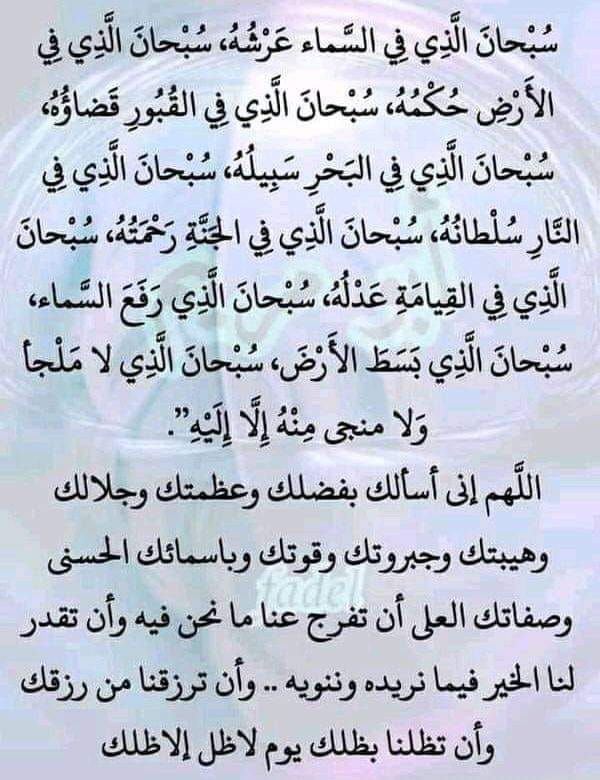 سُبْحانَ الَّذِي فِي السَّماء عَرْشُهُ، سُبْحانَ الَّذِي فِي
الأَرْضِ حُكْمُهُ، سُبْحانَ الَّذِي فِي القُبُورِ قَضاؤُهُ،
سُبْحانَ الَّذِي فِي البَحْرِ سَبِيلُهُ، سُبْحانَ الَّذِي فِي
النَّارِ سُلْطانُهُ، سُبْحانَ الَّذِي فِي الجَنَّةِ رَحْمَتُهُ، سُبْحانَ
الَّذِي فِي القِيامَةِ عَدْلُهُ، سُبْحانَ الَّذِي رَفَعَ السَّماء،
سُبْحانَ الَّذِي بَسَطَ الأَرْضَ، سُبْحانَ الَّذِي لا مَلْجأ
وَلا منجى مِنْهُ إِلَّا إِلَيْهِ”.
اللَّهم إنى أسألك بفضلك وعظمتك وجلالك
وهيبتك وجبروتك وقوتك وباسمائك الحسنى
وصفاتك العلى أن تفرج عنا ما نحن فيه وأن تقدر
لنا الخير فيما نريده وننويه .. وأن ترزقنا من رزقك
وأن تظلنا بظلك يوم لاظل إلاظلك
fadel